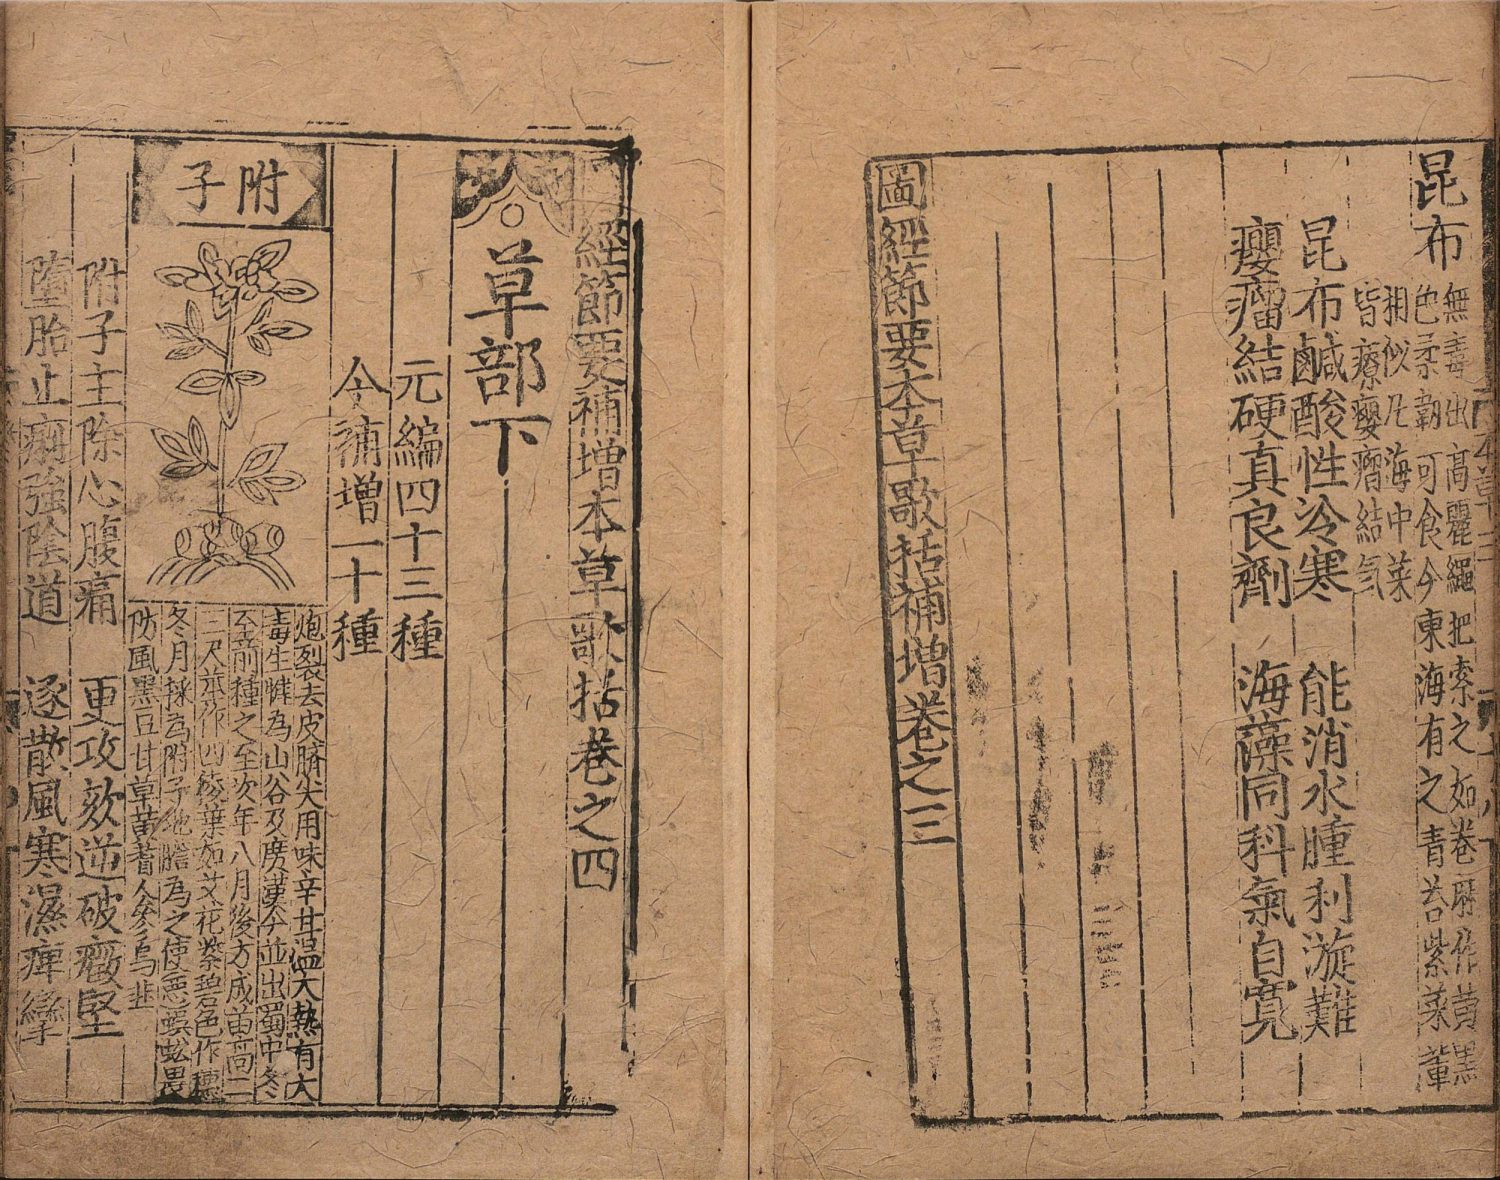 昆布
無毒出高麗繩把索之如卷麻作黄黑
色柔韌可食今東海有之青苔紫菜輩
相似凡海中菜
皆療癭瘤結氣
昆布鹹酸性冷寒 能消水腫利漩難
癭瘤結硬真良劑 海藻同科氣自寬
圖經節要本草歌括補增卷之三
圖經節要補增本草歌括卷之四
草部下
元編四十三種
今補增一十種
附子
炮裂去皮臍尖用味辛甘温大熱有大
毒生犍為山谷及廣漢今並出蜀中冬
至前種之至次年八月後方成苗高二
三尺莖作四稜葉如艾花紫碧色作穗
冬月採為附子地膽為之使惡蜈蚣畏
防風黑豆甘草黄蓍人參烏韭
附子主除心腹痛 更攻欬逆破癥堅
墮胎止痢強陰道 逐散風寒濕痺攣